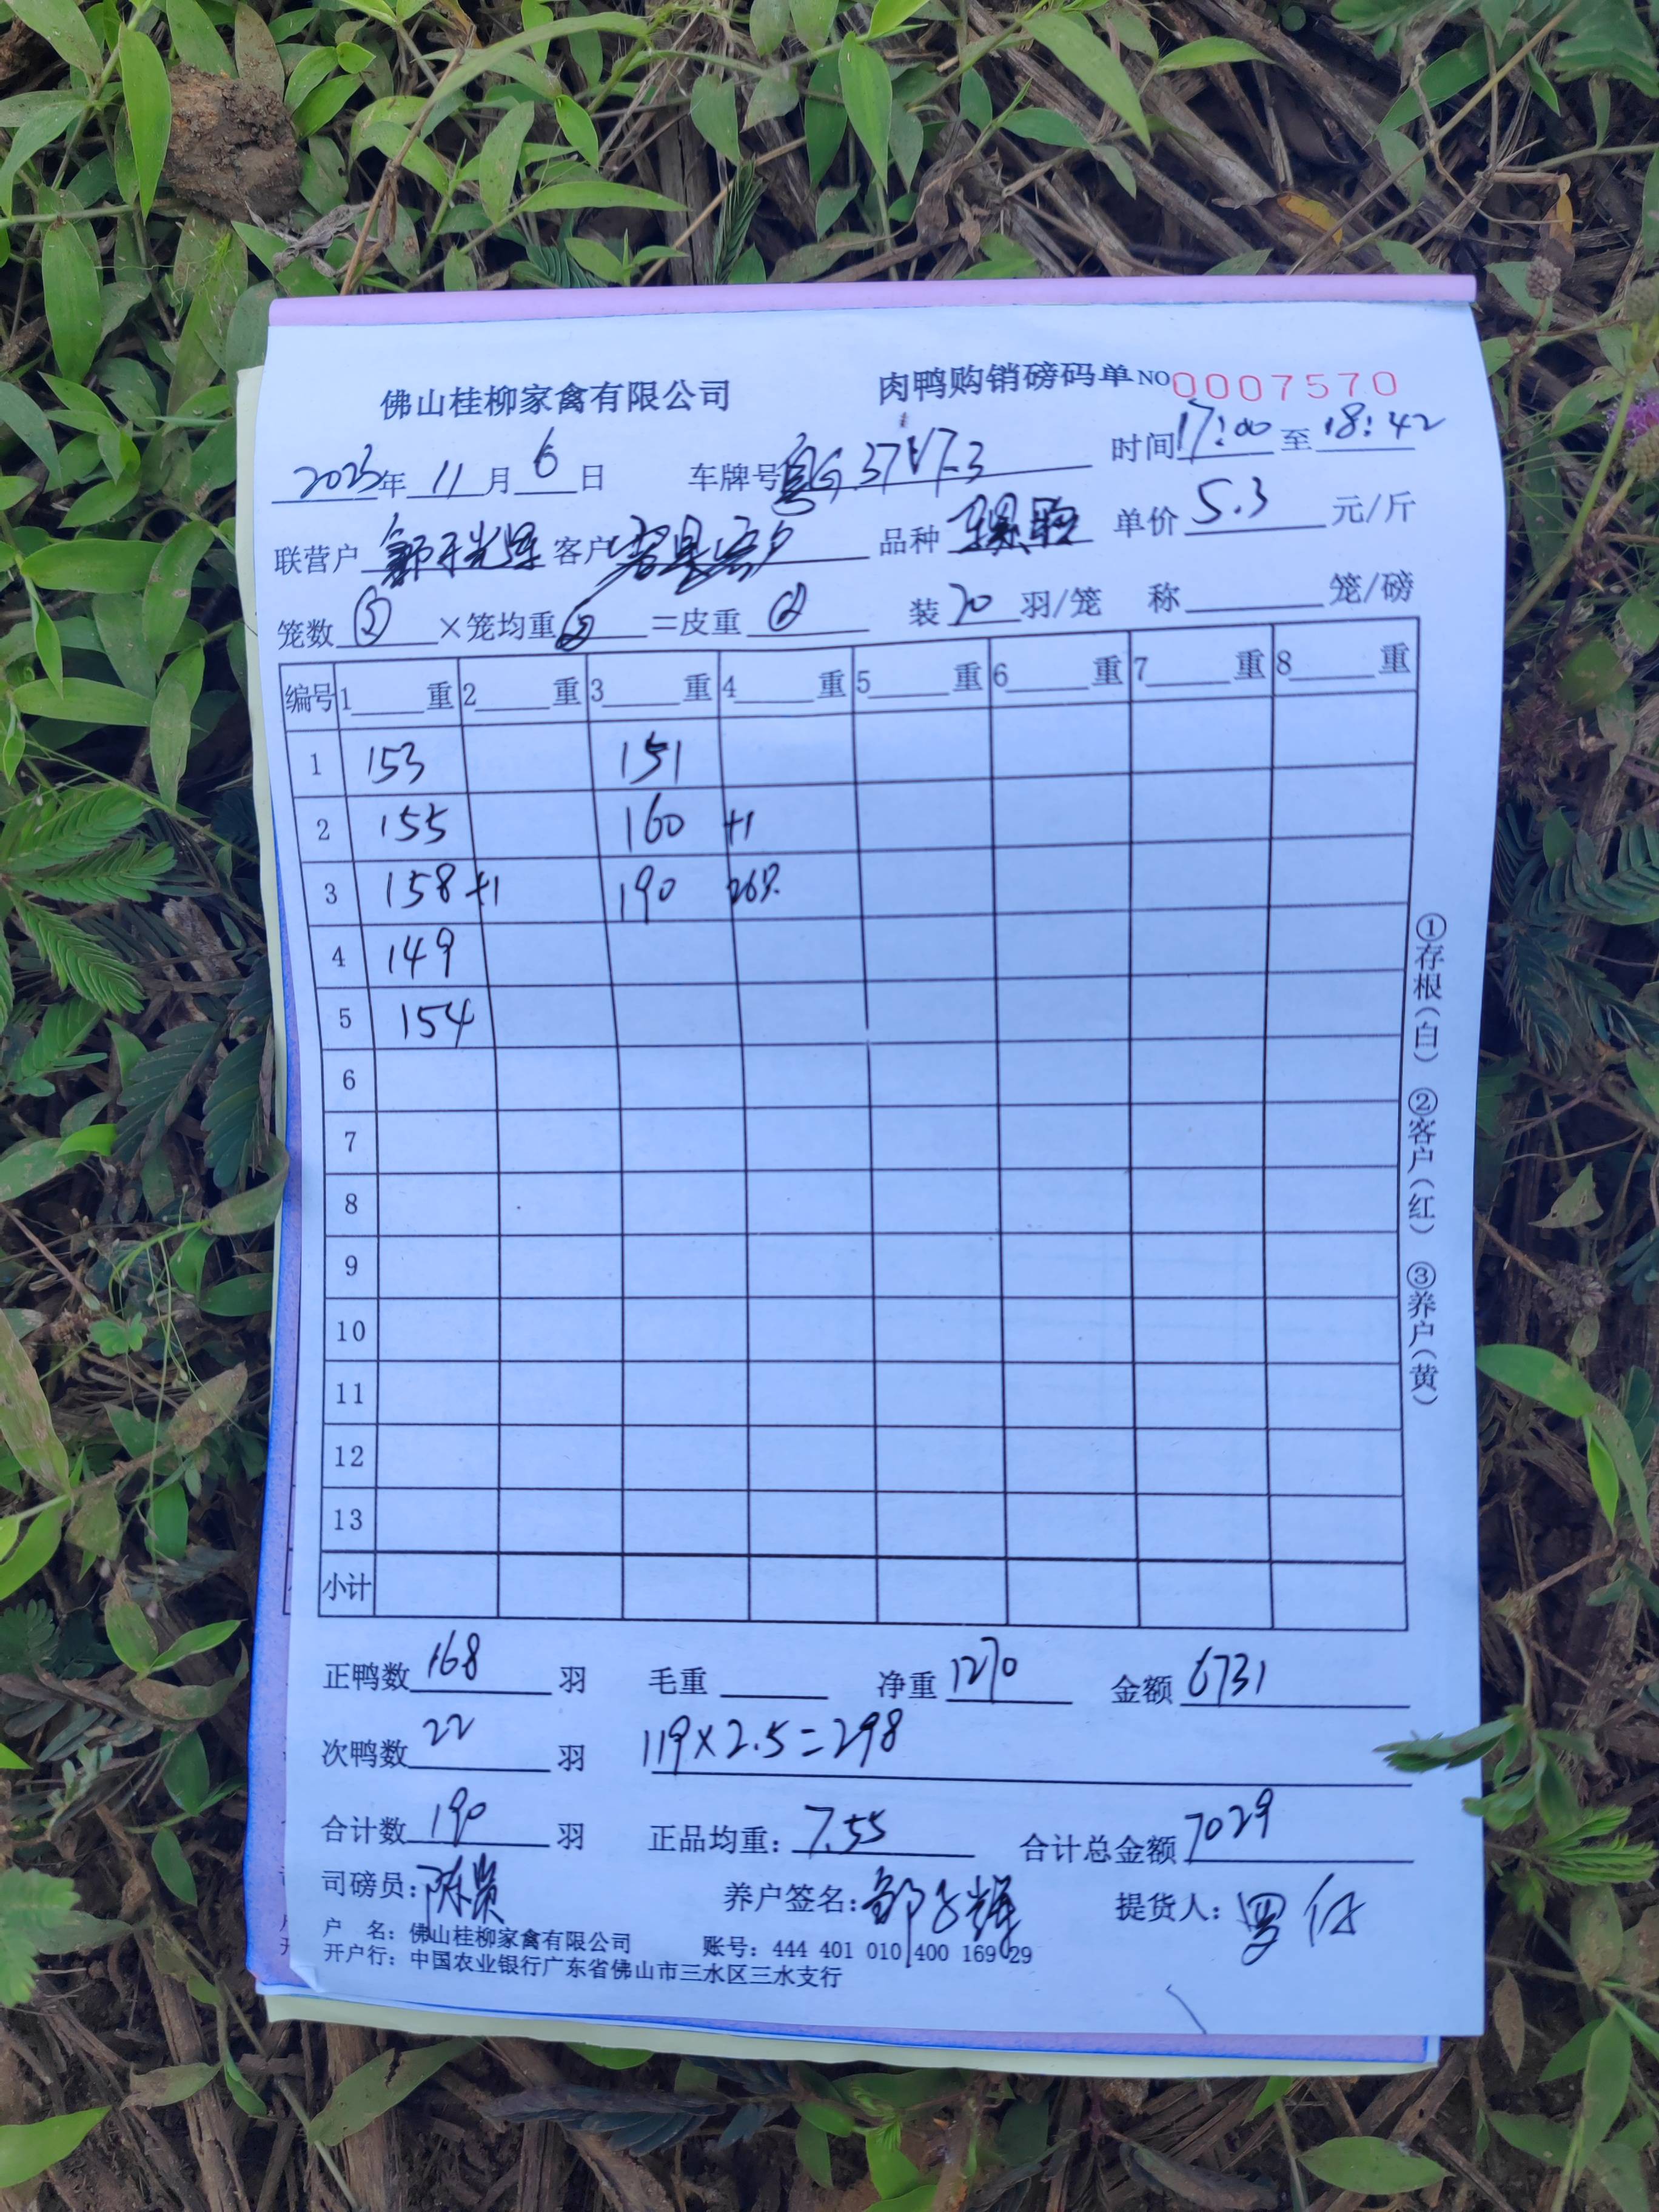 佛山桂柳家禽有限公司 肉鸭购销磅码单 NO 0007570
2023年 11月 6日 车牌号 时间 17:00 至 18:42
联营户 客户 品种 单价 5.3 元/斤
笼数 ×笼均重 =皮重 装 20 羽/笼 称 笼/磅
编号 1 重 2 重 3 重 4 重 5 重 6 重 7 重 8 重
1 153 151
2 155 160 +1
3 158 +1 190
4 149
5 154
6
7
8
9
10
11
12
13
小计
①存根(白) ②客户(红) ③养户(黄)
正鸭数 168 羽 毛重 净重 1270 金额 6731
次鸭数 22 羽 119×2.5=298
合计数 190 羽 正品均重: 7.55 合计总金额 7029
司磅员: 养户签名: 提货人:
户 名: 佛山桂柳家禽有限公司 账号: 444 401 010 400 169 29
开户行: 中国农业银行广东省佛山市三水区三水支行